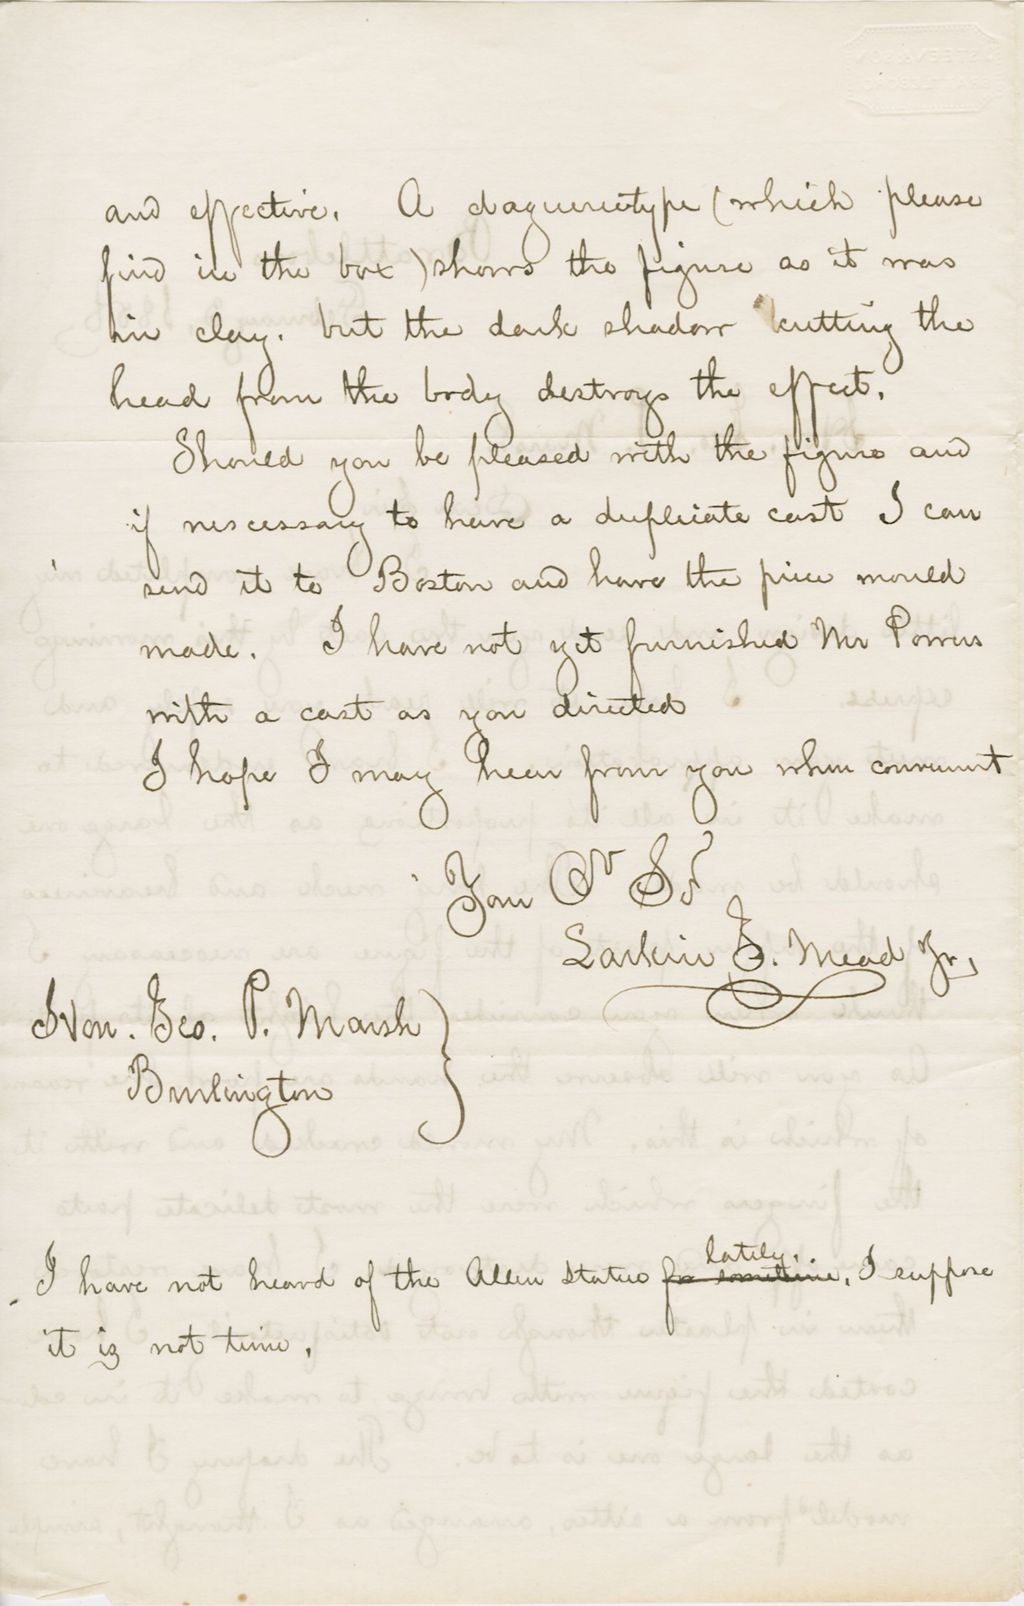 and effective. A daguereitype (which please
find in the box) shows the figure as it was
in clay. but the dark shadow cutting the
head from the body destroys the effect.
Should you be pleased with the figure and
if nescessary to have a duplicate cast I can
send it to Boston and have the piece mould
made. I have not yet furnished Mr Powers
with a cast as you directed
I hope I may hear from you when convenient
Your Ob St
Larkin G. Mead Jr,
Hon. Geo. P. Marsh
Burlington
lately.
I have not heard of the Allen Statue for sometime, I suppose
it is not time.